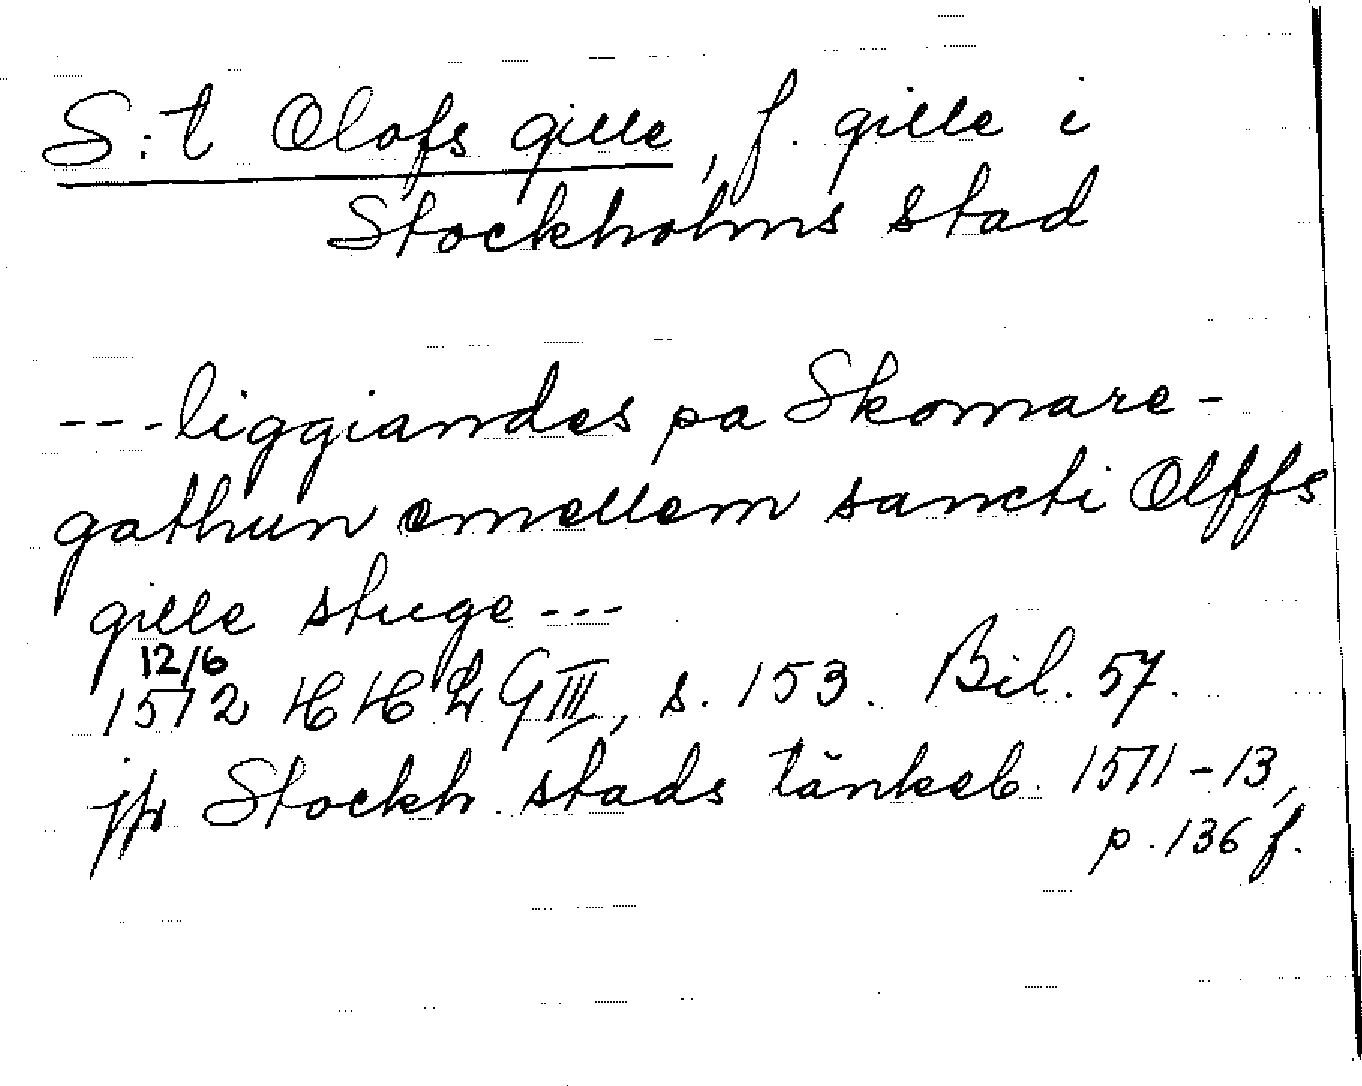 S:t Olofs gille, f. gille i
Stockholms stad
---liggiandes pa Skomare-
gathun emellem sancti Olffs
gille stuge---
12/6
1572 HH G III, s. 153. Bil. 57.
jfr Stockh. stads tänkeb. 1571-13,
p. 136 f.